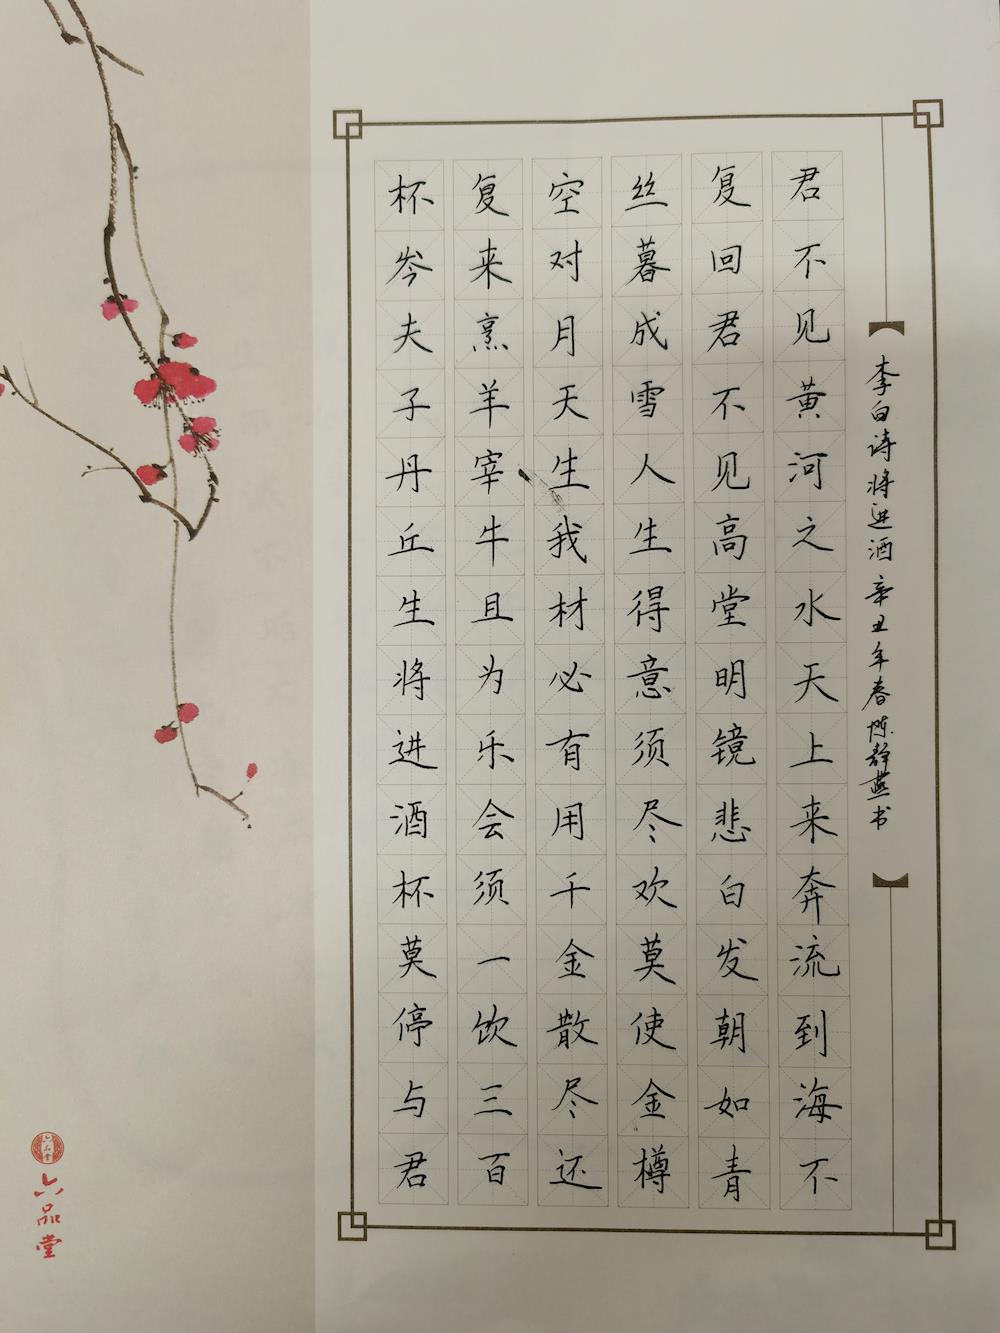 李白诗将进酒 辛丑年春陈静燕书
君不见黄河之水天上来奔流到海不
复回君不见高堂明镜悲白发朝如青
丝暮成雪人生得意须尽欢莫使金樽
空对月天生我材必有用千金散尽还
复来烹羊宰牛且为乐会须一饮三百
杯岑夫子丹丘生将进酒杯莫停与君
六品堂
六品堂